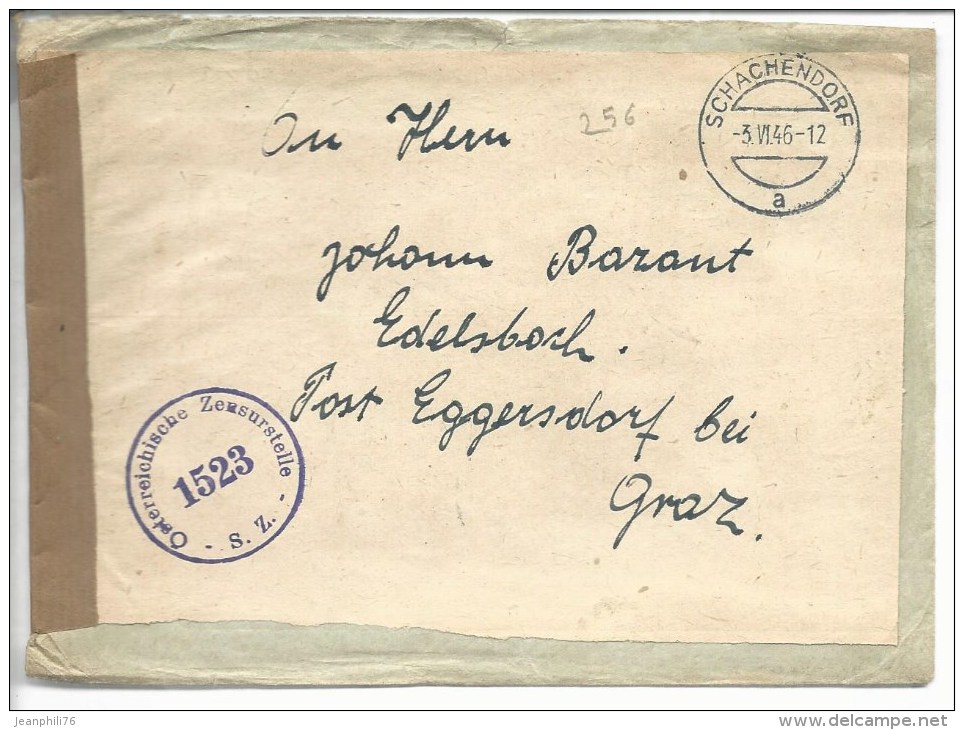 256
SCHACHENDORF
-3.VI.46-12
a
An Herrn
Johann Bazant
Edelsbach.
Post Eggersdorf bei
Graz.
Österreichische Zensurstelle
1523
- S. Z. -
jeanphili76
www.delcampe.net